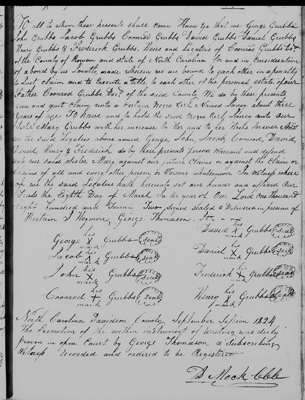 To all to whom these presents shall come Know ye that we George Grubbs
John Grubbs Jacob Grubbs Conrod Grubbs David Grubbs Daniel Grubbs
Henry Grubbs & Frederick Grubbs, Heirs and Legatees of Conrod Grubbs Senr.
of the County of Rowan and state of North Carolina for and in consideration
of a bond by us Jointly made wherein we are bound to each other in a penalty
to quit claim and to execute a title to each other of the personal estate of our
Father Conrod Grubbs Senr. of the said County We do by these presents
give and quit claim unto a Certain Negro Girl Named Sancy about three
years of age To have and to hold the said Negro Girl Sancy unto our
Sister Mary Grubbs with her increase to her and to her Heirs forever And
we the said Legatees above named George, John, Jacob, Conrod, David,
Daniel, Henry & Frederick do by these present forever Warrant and defend
unto our said Sister Mary against our future Claims or against the Claim or
Claims of all and every other person or Persons whatsoever In witness where
of we the said Legatees hath hereunto set our hands and affixed our
Seals the Eighth Day of March In the year of Our Lord One thousand
Eight hundred and Signed Sealed & Delivered in presence of
George Thomason
George X his mark Grubbs Seal
David X his mark Grubbs Seal
Jacob X his mark Grubbs Seal
Daniel X his mark Grubbs Seal
John X his mark Grubbs Seal
Frederick X his mark Grubbs Seal
Conrod X his mark Grubbs Seal
Henry X his mark Grubbs Seal
North Carolina Davidson County September Session 1824
The Execution of the within instrument of writing was duly
proven in open Court by George Thomason a Subscribing
Witness Recorded and ordered to be Registered
D. Mock Clk